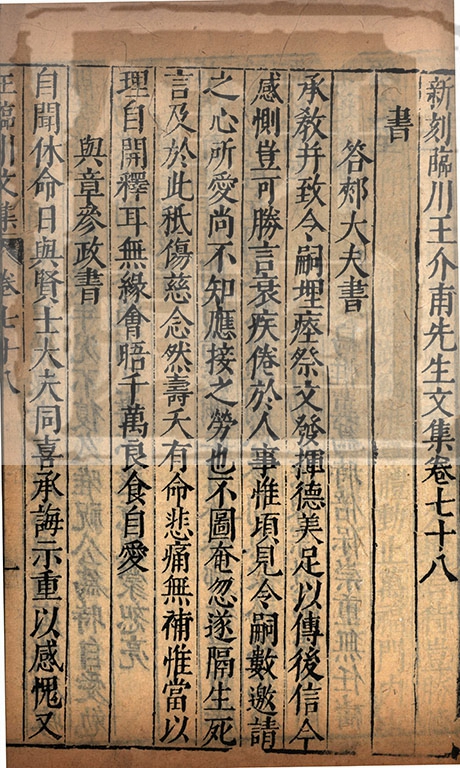 新刻臨川王介甫先生文集卷七十八
書
答郟大夫書
承教并致令嗣埋瘞祭文發揮德美足以傳後信今
感惻豈可勝言衰疾倦於人事惟頃見令嗣數邀請
之心所愛尚不知應接之勞也不圖奄忽遂隔生死
言及於此秖傷慈念然壽夭有命悲痛無補惟當以
理自開釋耳無緣會晤千萬良食自愛
與章參政書
自聞休命日與賢士大夫同喜承誨示重以感愧又
王臨川文集 卷七十八 一